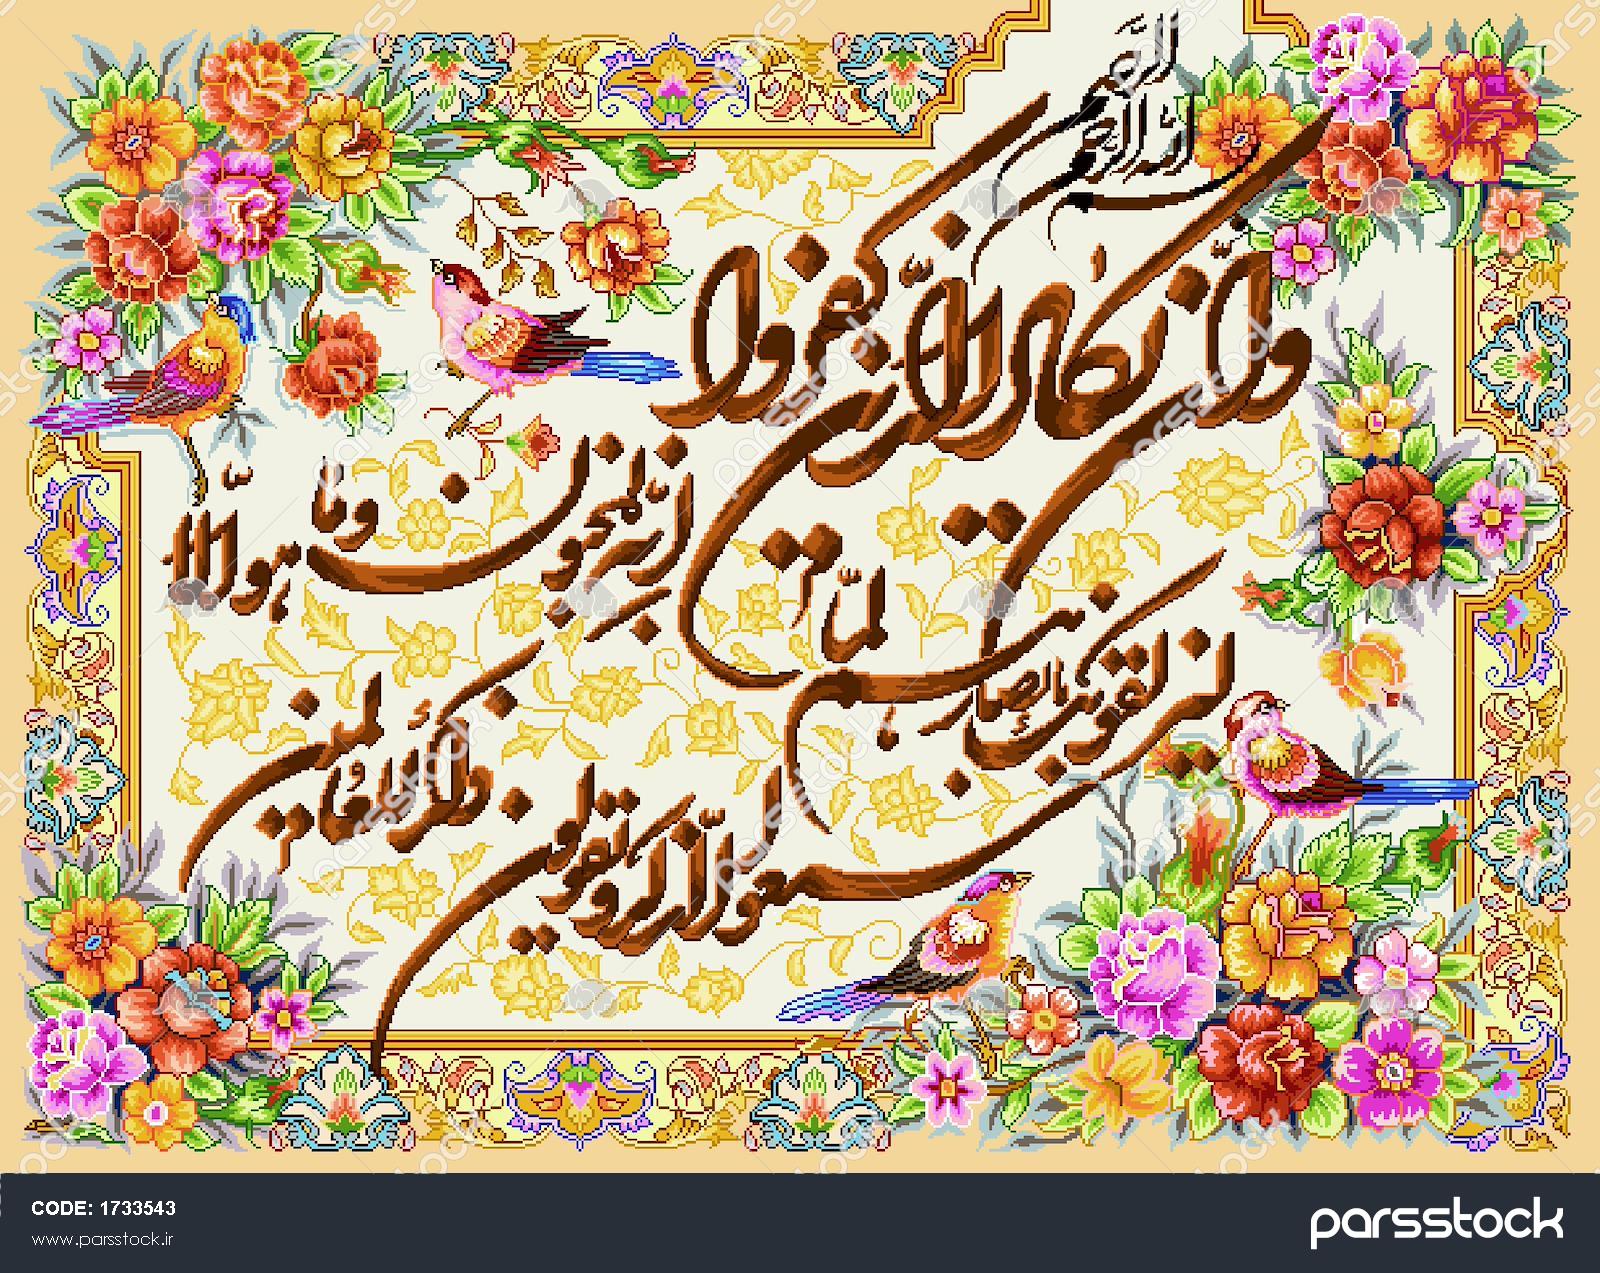 بسم الله الرحمن الرحیم
وان یکاد الذین کفروا
لیزلقونک بابصارهم لما
سمعوا الذکر و یقولون
انه لمجنون وما هو الا
ذکر للعالمین
CODE: 1733543
www.parsstock.ir
parsstock